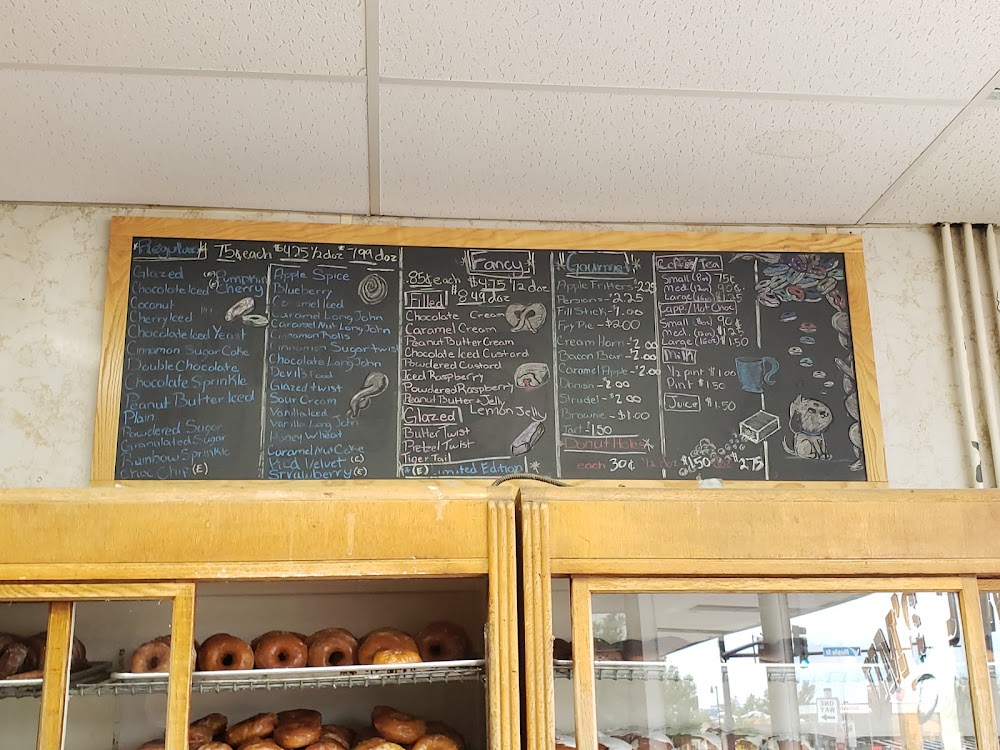 Regular 75¢ each $4.25 1/2 doz $7.99 doz
Glazed
Chocolate Iced
Coconut
Cherry Iced
Chocolate Iced Yeast
Cinnamon Sugar Cake
Double Chocolate
Chocolate Sprinkle
Peanut Butter Iced
Plain
Powdered Sugar
Granulated Sugar
Rainbow Sprinkle
Choc Chip (E)
(E) Pumpkin
Cherry
Apple Spice
Blueberry
Caramel Iced
Caramel Long John
Caramel Nut Long John
Cinnamon Rolls
Cinnamon Sugar Twist
Chocolate Long John
Devil's Food
Glazed Twist
Sour Cream
Vanilla Iced
Vanilla Long John
Honey Wheat
Caramel Nut Cake
Red Velvet (E)
Strawberry (E)
Fancy
85¢ each $4.75 1/2 doz
$8.49 doz
Filled
Chocolate Cream
Caramel Cream
Peanut Butter Cream
Chocolate Iced Custard
Powdered Custard
Iced Raspberry
Powdered Raspberry
Peanut Butter + Jelly
Lemon Jelly
Glazed
Butter Twist
Pretzel Twist
Tiger Tail
*(E) Limited Edition
Gourmet
Apple Fritters - 2.25
Persians - $2.25
Fill Stick - 1.00
Fry Pie - $2.00
Cream Horn - $2.00
Bacon Bar - $2.00
Caramel Apple - $2.00
Danish - $2.00
Strudel - $2.00
Brownie - $1.00
Tart - 1.50
Donut Holes
each 30¢ 1/2 doz $1.50 doz $2.75
Coffee/Tea
Small (8oz) 75¢
Med. (12oz) 90¢
Large (16oz) $1.25
Capp/Hot Choc
Small (8oz) 90¢
med. (12oz) $1.50
Large (16oz) $1.50
Milk
1/2 pint $1.00
Pint $1.50
Juice $1.50
ONE
WAY